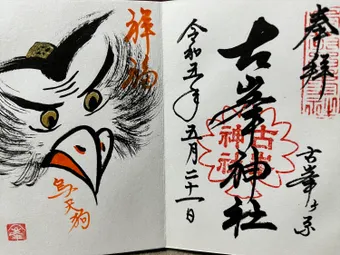 奉拝
古峯ヶ原
古峯神社
古峯神社
令和五年五月二十一日
祥福
烏天狗